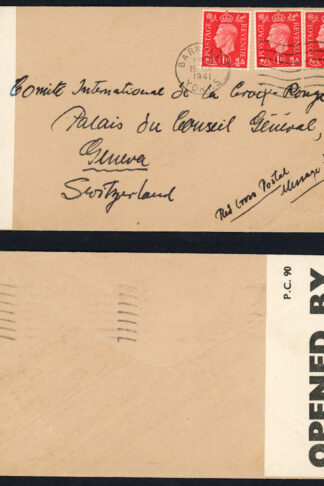 POSTAGE REVENUE
1D
POSTAGE REVENUE
1D
1941
Comité International de la Croix-Rouge
Palais du Conseil Général,
Geneva
Switzerland
Red Cross Postal
Message
P.C. 90
OPENED BY